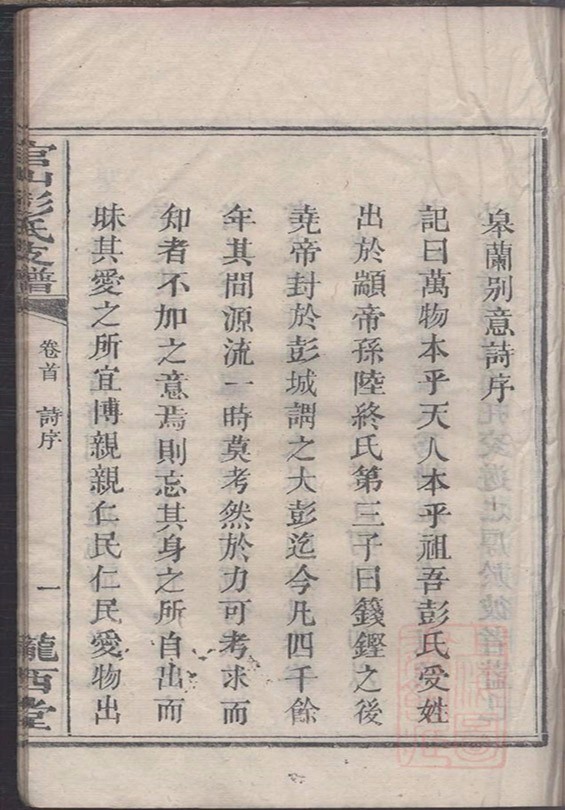 皋蘭别意詩序
記曰萬物本乎天人本乎祖吾彭氏受姓
出於顓帝孫陸終氏第三子曰籛鏗之後
堯帝封於彭城謂之大彭迄今凡四千餘
年其間源流一時莫考然於力可考求而
知者不加之意焉則忘其身之所自出而
昧其愛之所宜博親親仁民仁民愛物出
官山彭氏支譜
卷首 詩序
一
隴西堂